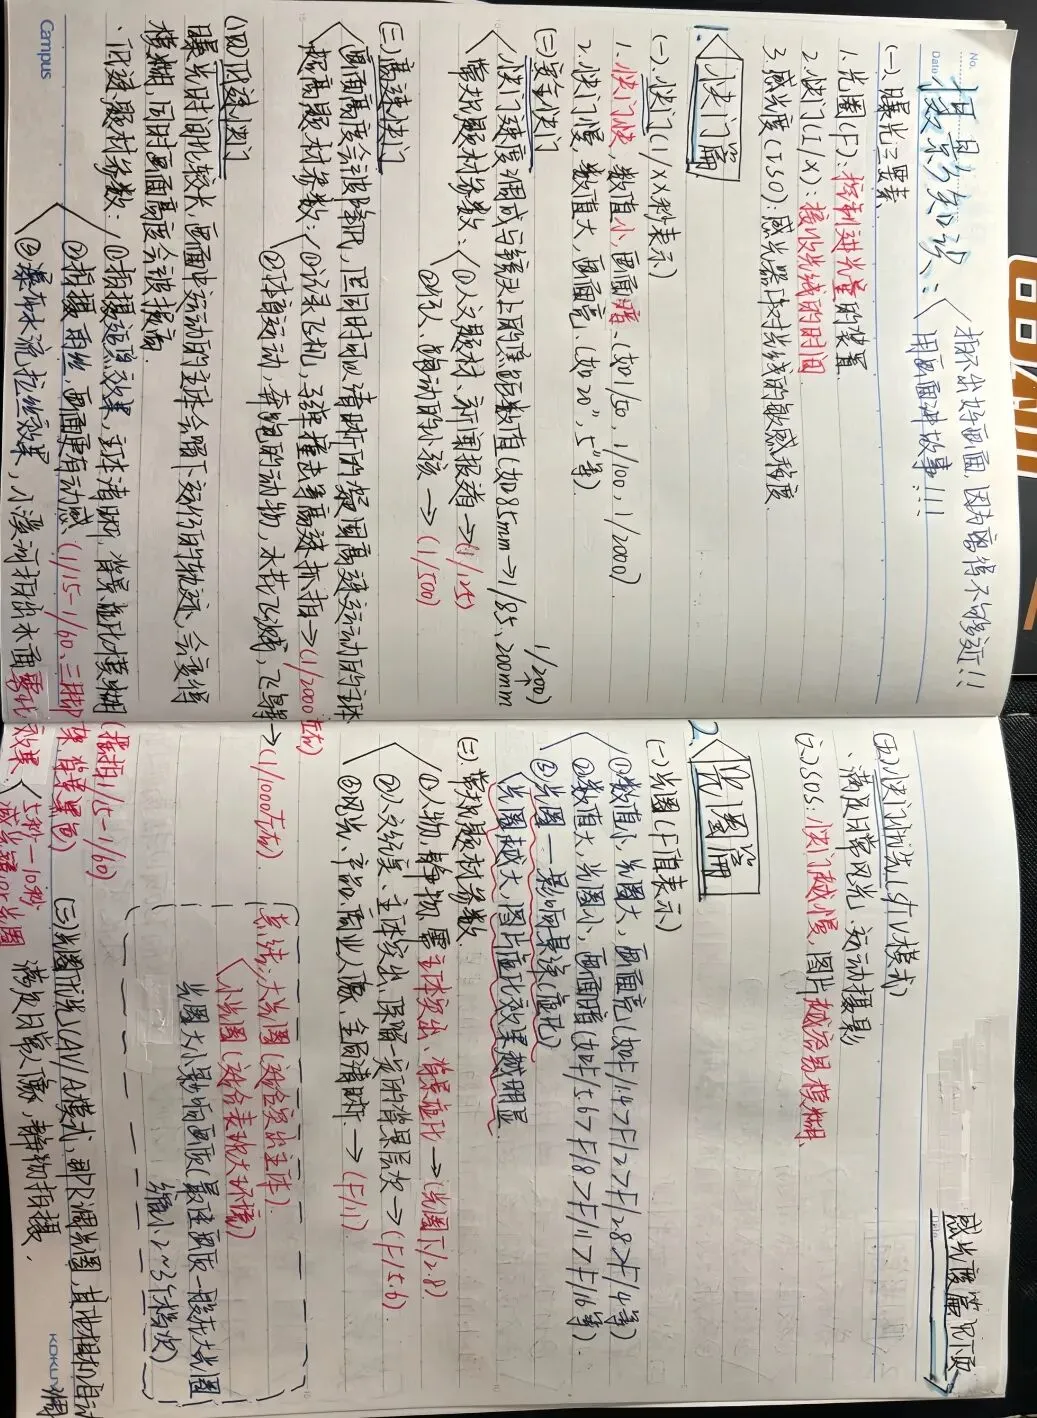 No.
Date
摄影知识：
拍不出好画面，因为离得不够近！！
用画面讲故事！！！
(一) 曝光三要素
1. 光圈(F)：控制进光量的装置
2. 快门(1/X)：接收光线的时间
3. 感光度(ISO)：感光器体对光线的敏感程度
1. 快门篇
(一) 快门(1/XX秒表示)
1. 快门快，数值小，画面暗 (如1/50, 1/100, 1/2000)
2. 快门慢，数值大，画面亮 (如20", 5"等)
(二) 安全快门
快门速度调成与镜头上的焦距数值(如85mm→1/85、200mm 1/200)
常规题材参数：①人文题材、新闻报道→(1/125)
②行人、跑动的小孩→(1/500)
(三) 高速快门
画面高度会被降低，但同时可以清晰的凝固高速运动的主体
超高题材参数：①记录飞机，子弹撞击等高速抓拍→(1/2000左右)
②体育运动，奔跑的动物，水花飞溅，飞鸟等→(1/1000左右)
(四) 低速快门
曝光时间比较长，画面中运动的主体会留下运行的轨迹，会变得
模糊，同时画面高度会被提高
低速题材参数：①拍摄追随效果，主体清晰，背景虚化模糊 (摇拍1/15-1/60)
②拍摄雨丝，画面更有动感 (1/15-1/60、三脚架、背景黑色)
③瀑布水流拉丝效果，小溪河拍出水面雾化效果
Campus
(五) 快门优先(S/TV模式)
满足日常风光、运动摄影
(六) SOS：快门越慢，图片越容易模糊
感光度篇见下页
2. 光圈篇
(一) 光圈(F值表示)
①数值小，光圈大，画面亮(如F/1.4>F/2>F/2.8>F/4等)
②数值大，光圈小，画面暗(如F/5.6>F/8>F/11>F/16等)
③光圈——影响景深(虚化)
光圈越大，图片虚化效果越明显
(二) 常规题材参数
①人物，静物，需主体突出、背景虚化→(光圈F/2.8)
②人文纪实、主体突出，保留一定的背景层次→(F/5.6)
③风光、产品、商业人像，全局清晰→(F/11)
总结：大光圈(适合突出主体)
小光圈(适合表现大环境)
光圈大小影响画质(最佳画质一般在最大光圈
缩小2~3个档次)
(三) 光圈优先(AV/A模式，即只调光圈，其他相机自动调
满足日常人像，静物拍摄.
KOKUYO